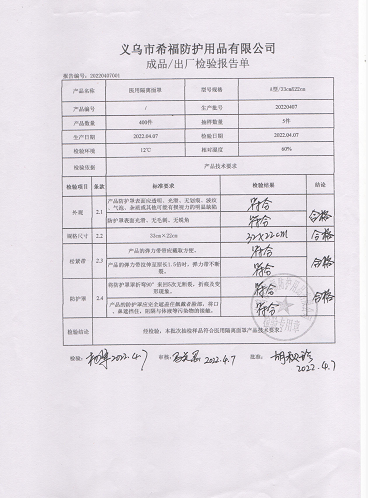 义乌市希福防护用品有限公司
成品/出厂检验报告单
报告编号:20220407001
产品名称 医用隔离面罩 型号规格 A型/33cm×22cm
产品编号 / 生产批号 20220407
产品数量 400件 抽样数量 5件
生产日期 2022.04.07 检验日期 2022.04.07
检验环境 12℃ 相对湿度 60%
检验依据 产品技术要求
检验项目 条款 标准要求 检验结果 结论
外观 2.1 产品防护罩表面应透明、光滑、无划痕、波纹、气泡、杂质或其他可能有损视力的明显缺陷 符合 合格
防护罩表面光滑，无毛刺、无锐角 符合
规格尺寸 2.2 33cm×22cm 33×22cm 合格
松紧带 2.3 产品的弹力带带应戴取方便。 符合 合格
产品的弹力带拉伸至原长1.5倍时，弹力带不断裂。 符合
防护罩 2.4 将防护罩罩折弯90°来回5次无断裂、折痕及变形现象。 符合 合格
产品的防护罩应完全遮盖住佩戴者脸部，将口、鼻遮挡住，阻隔与体液等污染物的接触。 符合
检验结论 经检验，本批次抽检样品符合医用隔离面罩产品技术要求。
检验专用章
检验: 2022.4.7 审核: 2022.4.7 批准:
2022.4.7